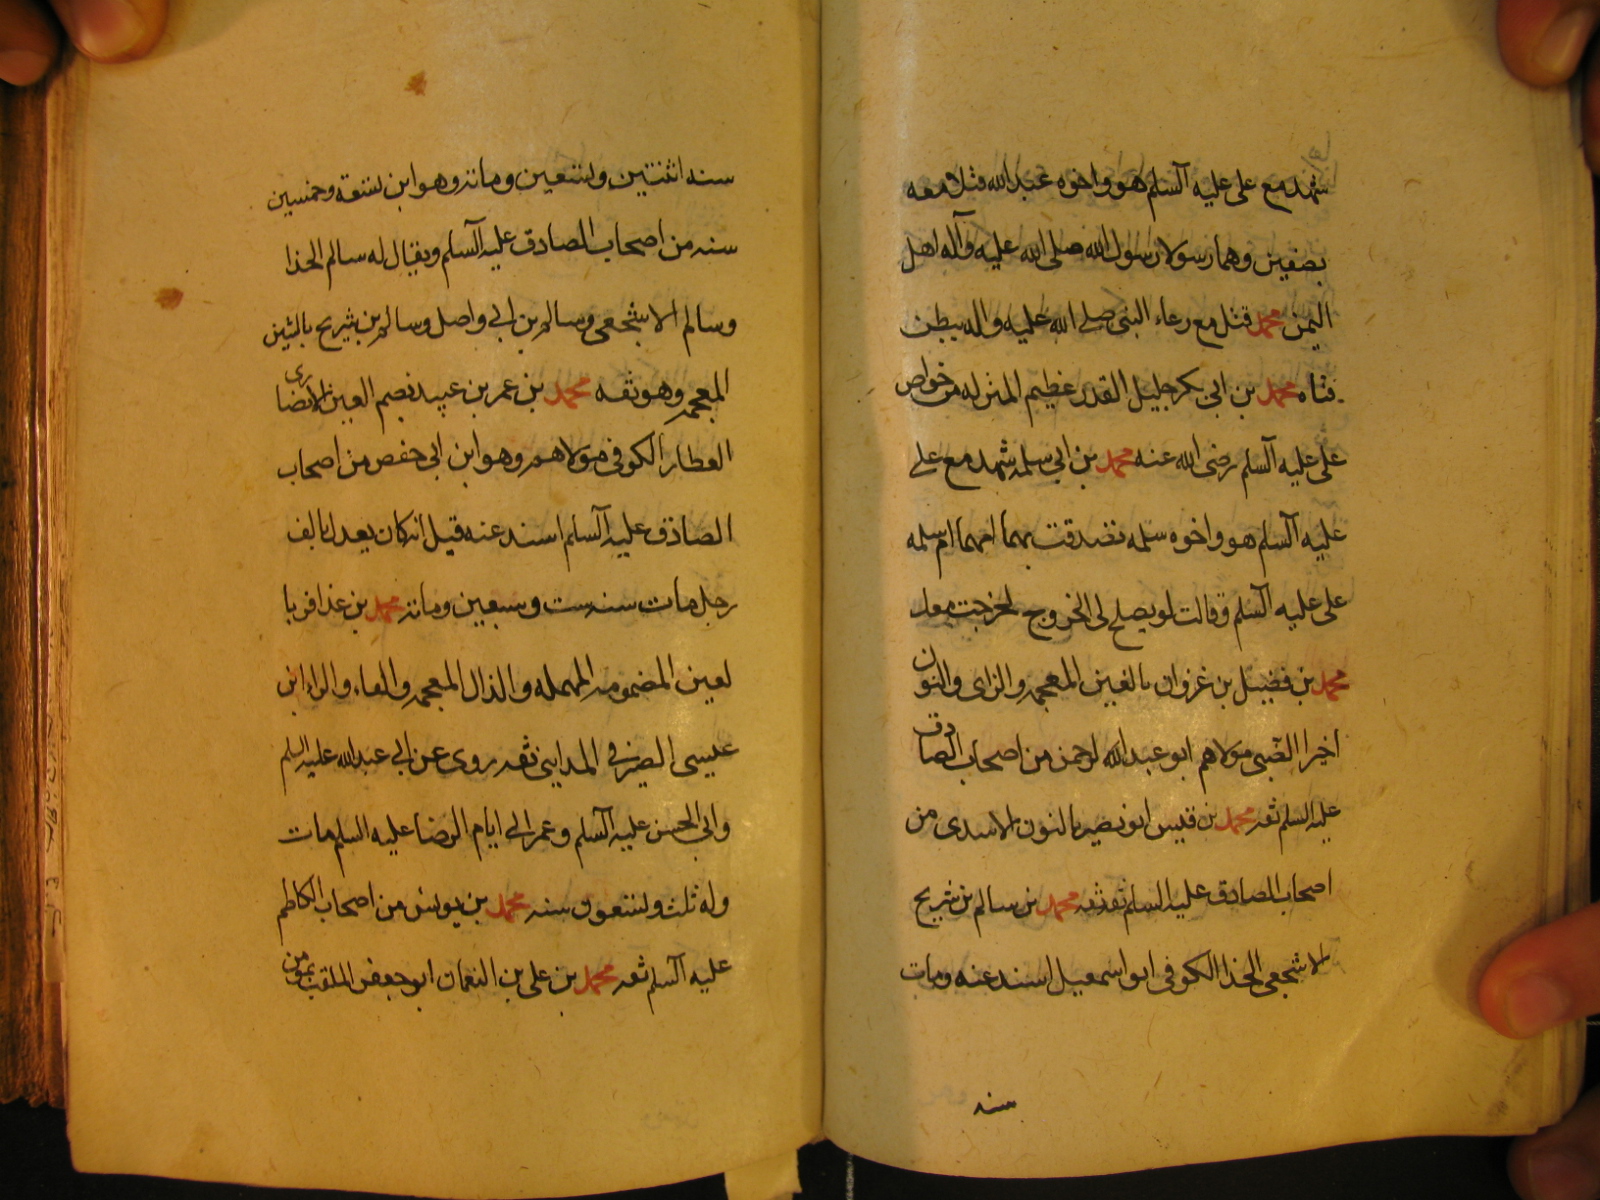 شهد مع على عليه السلم هو واخوه عبدالله قتلا معه
بصفين وهما رسولا رسول الله صلى الله عليه وآله اهل
اليمن محمد قتل مع رعاء النبى صلى الله عليه واله ببطن
قناه محمد بن ابى بكر جليل القدر عظيم المنزله من خواص
على عليه السلم رضى الله عنه محمد بن ابى سلمه شهد مع على
عليه السلم هو واخوه سلمه تصدقت بهما امهما ام سلمه
على عليه السلم وقالت لو يصلح لى الخروج لخرجت معك
محمد بن فضيل بن غزوان بالغين المعجمه والزاى والنون
اخيرا الضبى مولاهم ابو عبدالله لرحمن من اصحاب الصادق
عليه السلم ثقه محمد بن قيس ابو نصير بالنون الاسدى من
اصحاب الصادق عليه السلم ثقه ثقه محمد بن سالم بن شريح
الاشجعى الحذا الكوفى ابو اسمعيل اسند عنه ومات
سنه
سنه اثنتين وتسعين ومائه وهو ابن تسعة وخمسين
سنه من اصحاب الصادق عليه السلم ويقال له سالم الحذا
وسالم الاشجعى وسالم بن ابى واصل وسالم بن شريح بالشين
المعجمه وهو ثقه محمد بن عمر بن عبيد بضم العين الانصارى
العطار الكوفى مولاهم وهو ابن ابى حفص من اصحاب
الصادق عليه السلم اسند عنه قيل انه كان يعدل بالف
رجل مات سنه ست وسبعين ومائه محمد بن عذافر با
لعين المضمومه المهمله والذال المعجمه والفاء والراء ابن
عيسى الصيرفى المداينى ثقه روى عن ابى عبدالله عليه السلم
وابى الحسن عليه السلم وعمر الى ايام الرضا عليه السلم مات
وله ثلث وتسعون سنه محمد بن يونس من اصحاب الكاظم
عليه السلم ثقه محمد بن على بن النعمان ابو جعفر الملقب بمومن